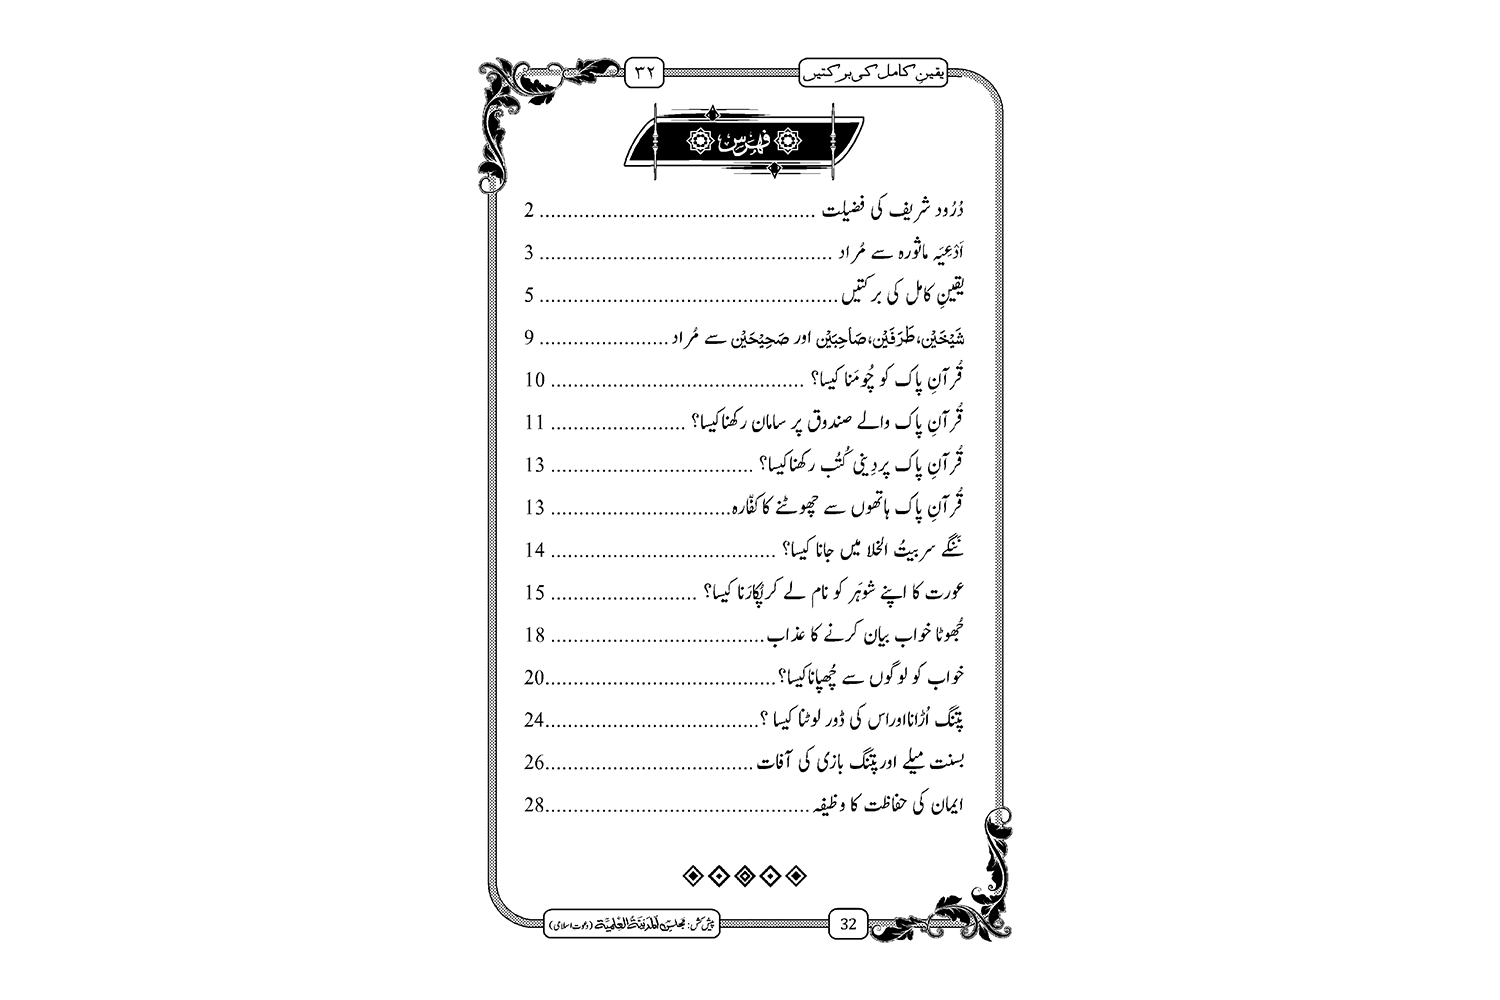 یقینِ کامل کی برکتیں
۳۲
فہرس
دُرُود شریف کی فضیلت ................................................ 2
اَدْعِیَہ ماثورہ سے مُراد .................................................... 3
یقینِ کامل کی برکتیں..................................................... 5
شَیْخَیْن، طَرَفَیْن، صَاحِبَیْن اور صَحِیْحَیْن سے مُراد ....................... 9
قُرآنِ پاک کو چُومَنا کیسا؟ ............................................. 10
قُرآنِ پاک والے صندوق پر سامان رکھنا کیسا؟ ........................ 11
قُرآنِ پاک پر دِینی کُتُب رکھنا کیسا؟ .................................... 13
قُرآنِ پاک ہاتھوں سے چھوٹنے کا کفّارہ................................ 13
نَنگے سر بیتُ الخلا میں جانا کیسا؟ ........................................ 14
عورت کا اپنے شوہَر کو نام لے کر پُکارَنا کیسا؟ .......................... 15
جُھوٹا خواب بیان کرنے کا عذاب...................................... 18
خواب کو لوگوں سے چُھپانا کیسا؟.........................................20
پتنگ اُڑانا اور اس کی ڈور لوٹنا کیسا ؟......................................24
بسنت میلے اور پتنگ بازی کی آفات.....................................26
ایمان کی حفاظت کا وظیفہ...............................................28
32
پیش کش: مجلس المدینۃ العلمیۃ (دعوتِ اسلامی)